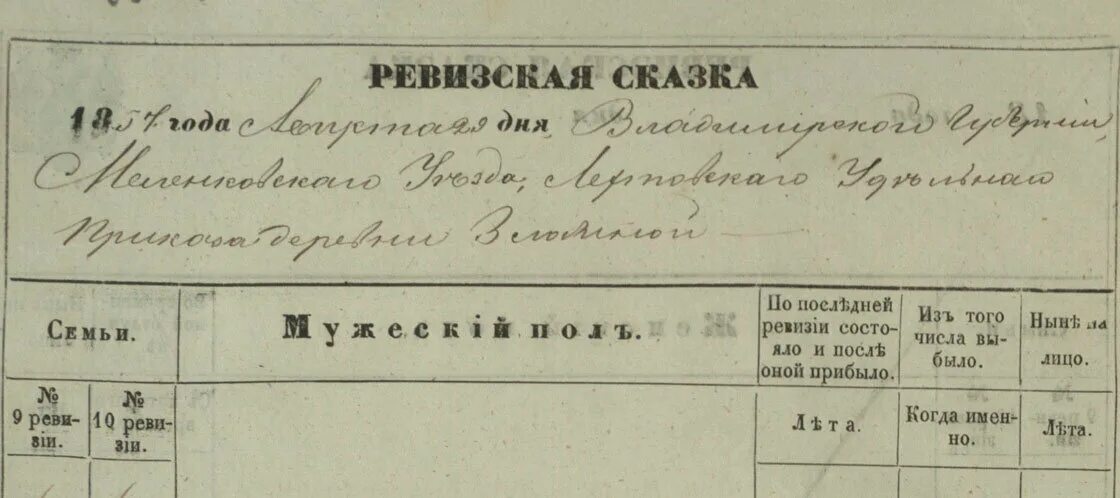 РЕВИЗСКАЯ СКАЗКА
1857 года Августа 29 дня, Владимирской Губернии,
Меленковскаго Уѣзда, Удѣльнаго
Приказа деревни
Семьи.
Мужескій полъ.
По послѣдней
ревизіи состо-
яло и послѣ
оной прибыло.
Изъ того
числа вы-
было.
Нынѣ на
лицо.
№
9 реви-
зіи.
№
10 реви-
зіи.
Лѣта.
Когда имен-
но.
Лѣта.